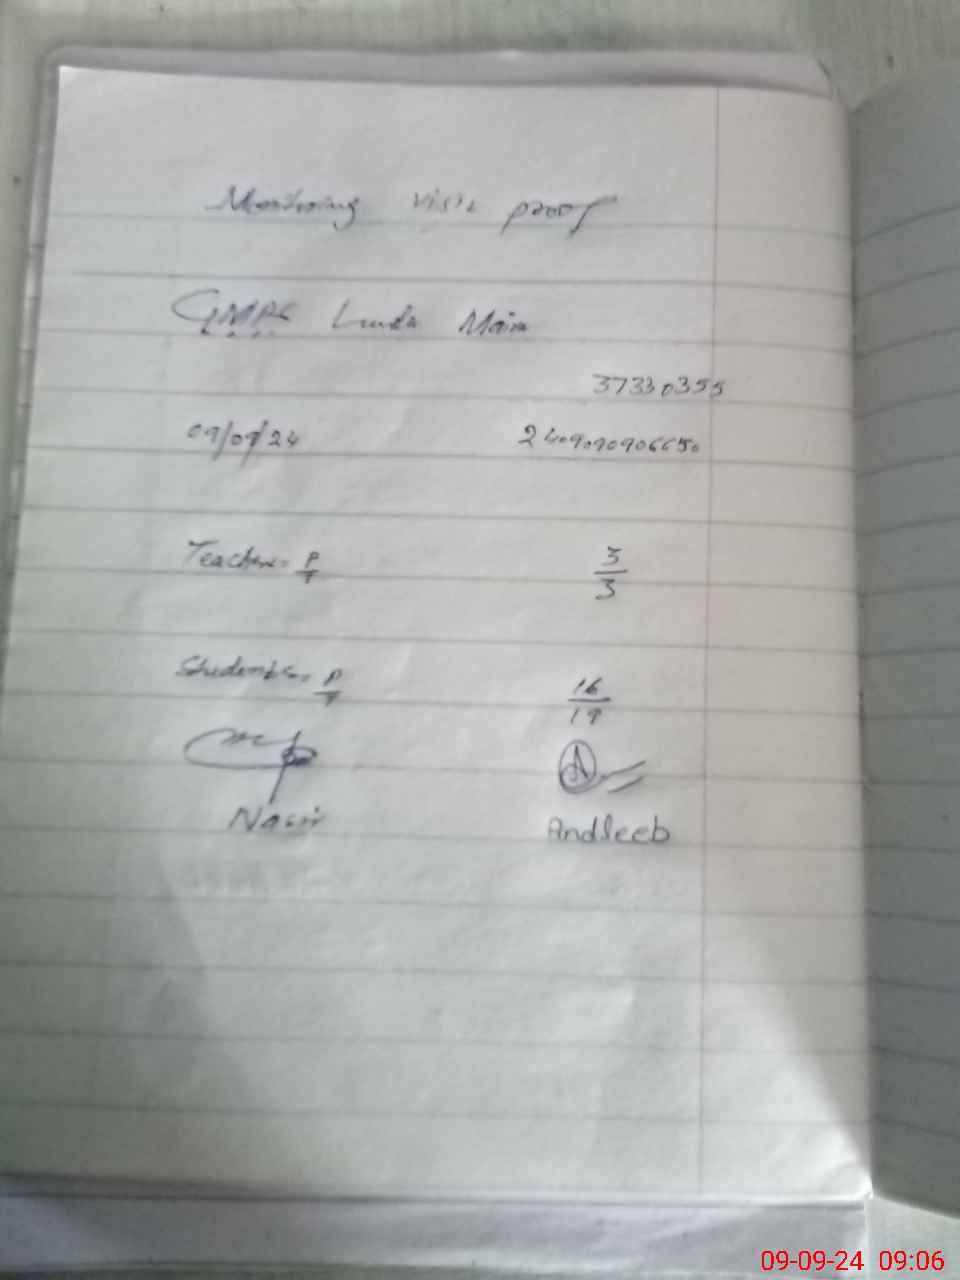 Monitoring visit proof
GMPS Lunda Main
37330355
09/09/24 2409090906650
Teachers = P/T 3/3
Students = P/T 16/19
Nasir Andleeb
09-09-24 09:06